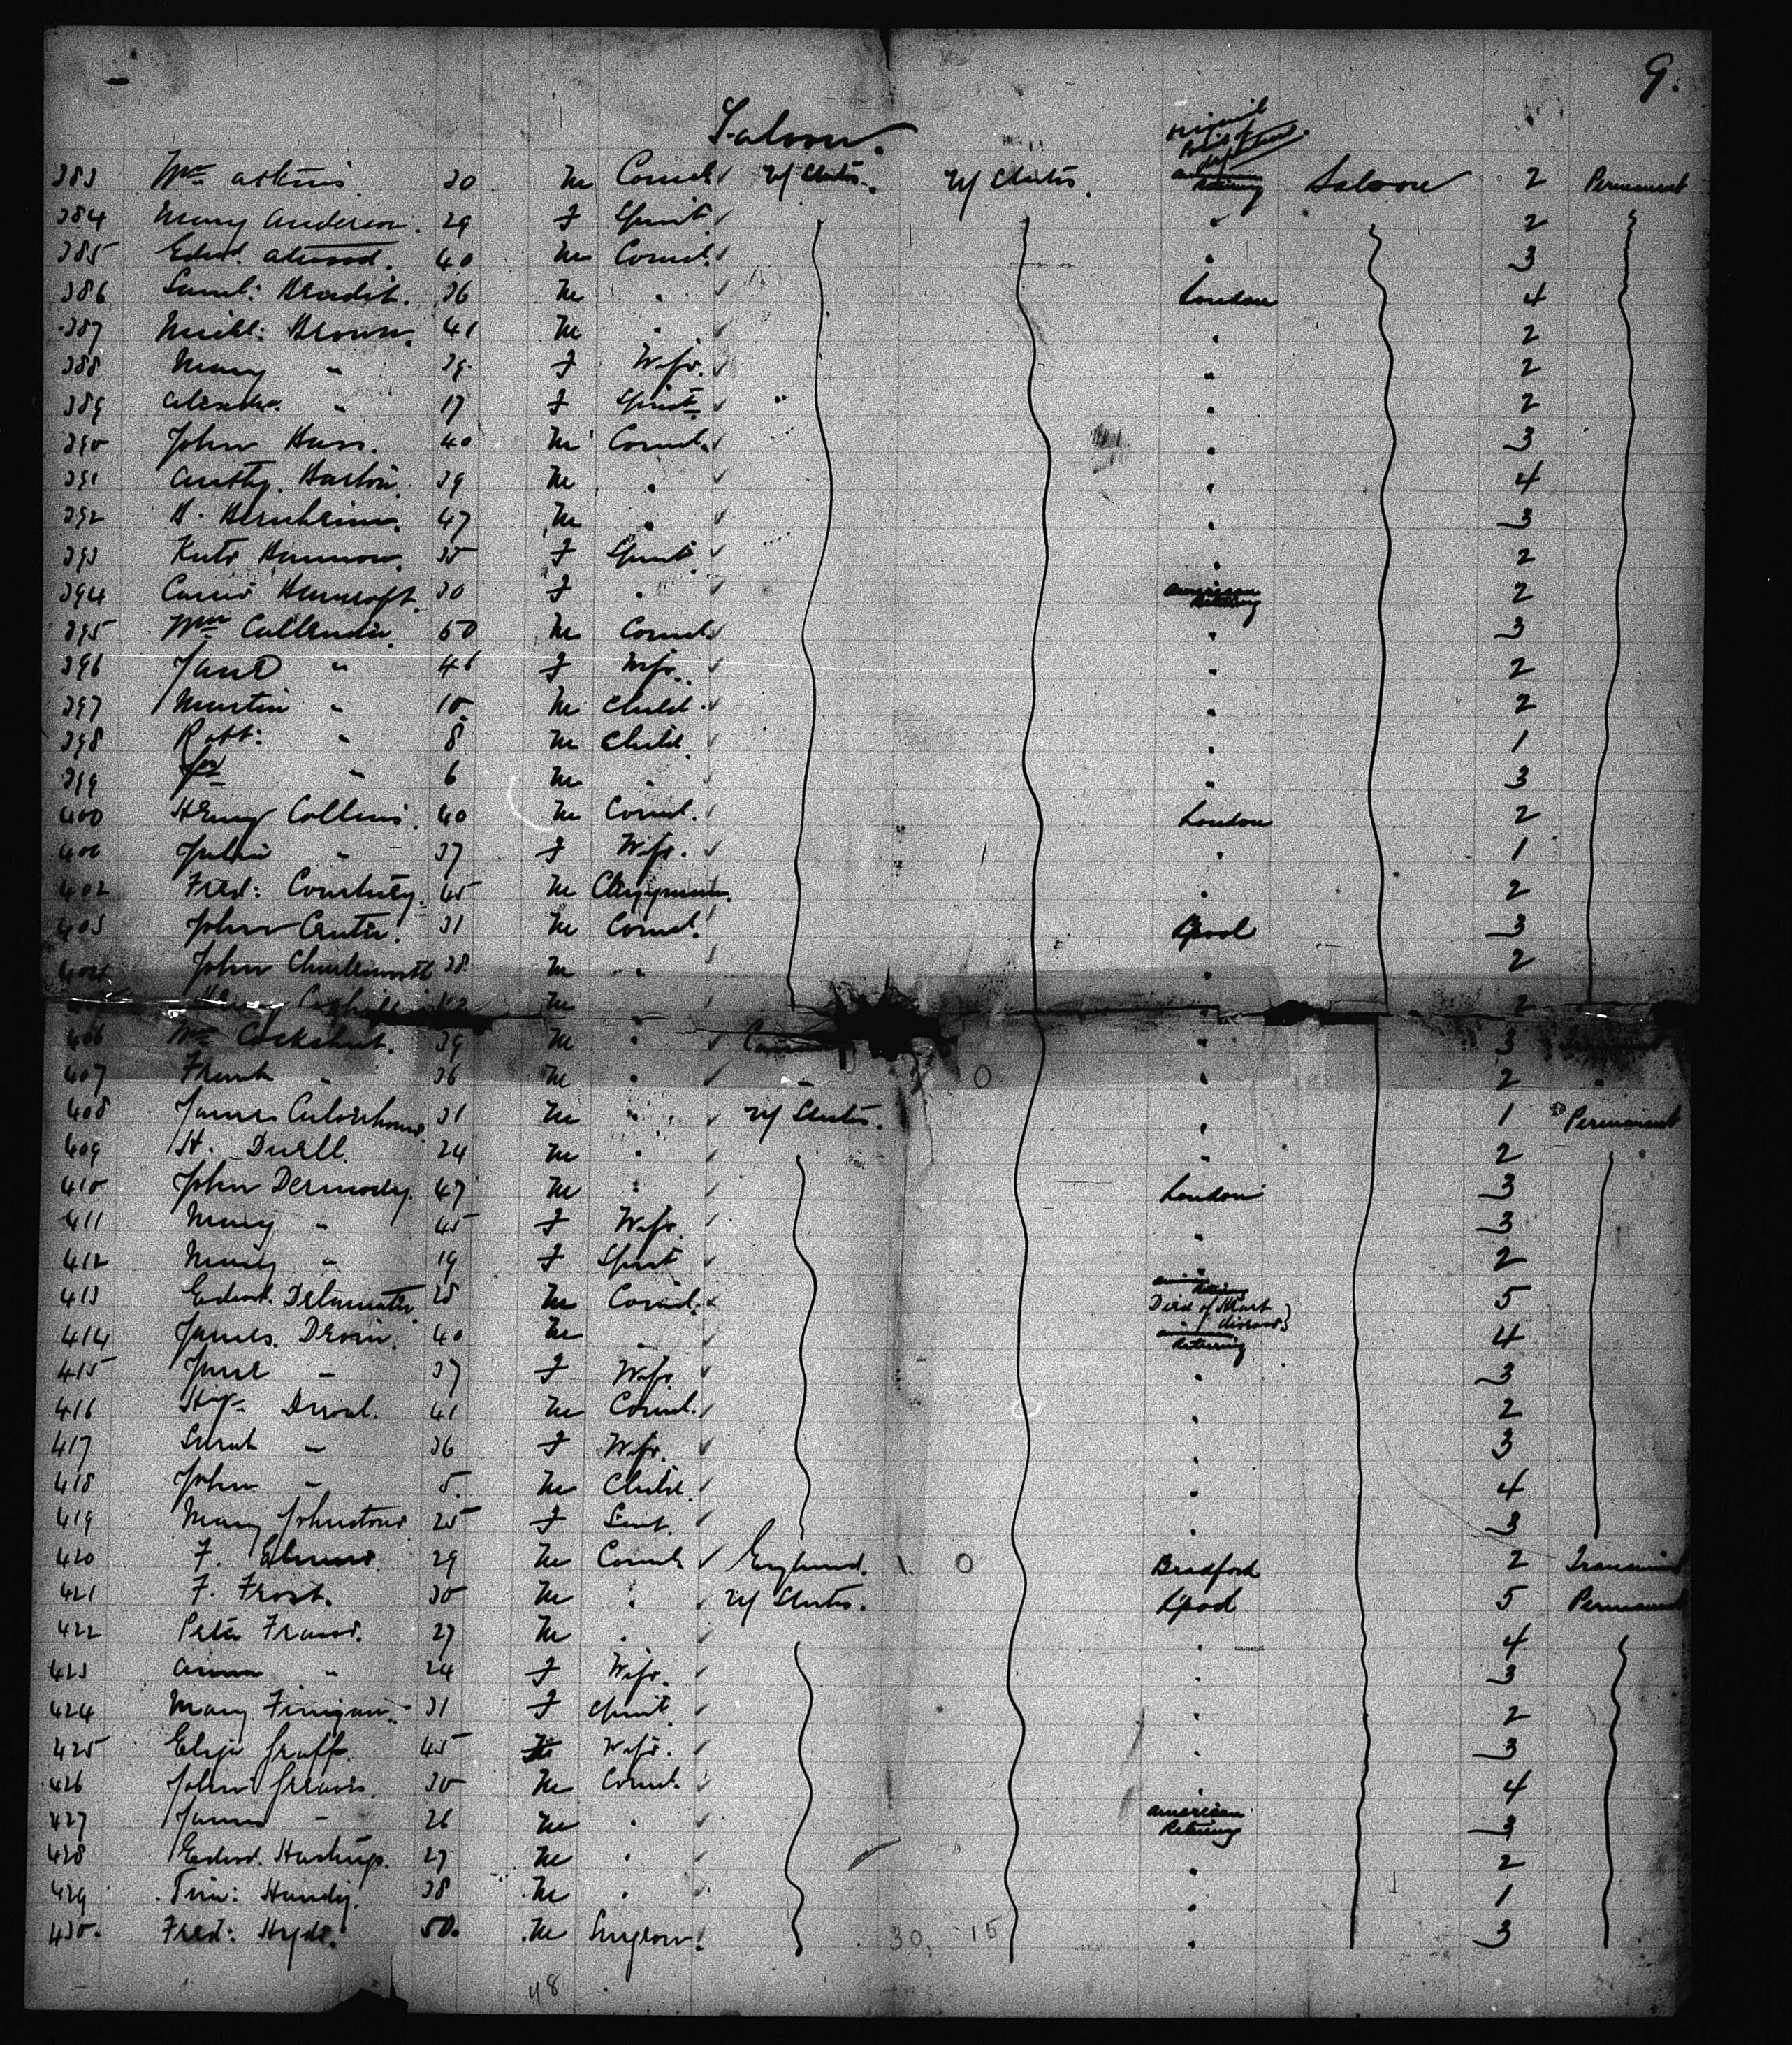 9.
Saloon.
original port of departure.
383 Wm Atkins. 30 M Comcl U/ States. U/ States. American Retning Saloon 2 Permanent
384 Mary Anderson. 29 F Spinst. 2
385 Edwd. Atwood. 40 M Comcl. " 3
386 Saml: Bradit. 36 M " London 4
387 Michl: Brown. 41 M " " 2
388 Mary " 39 F Wife. " 2
389 " 17 F Spinst. " 2
390 John Bass. 40 M Comcl. " 3
391 Anthy. Barton. 39 M " " 4
392 B. Bernheim. 47 M " " 3
393 Kate Bannon. 35 F Spinst. " 2
394 Carrie Bancroft. 30 F " American Retning 2
395 Wm Callender. 50 M Comcl. " 3
396 Jane " 46 F Wife. " 2
397 Martin " 10 M Child. " 2
398 Robt: " 8 M Child. " 1
399 Jos " 6 M " " 3
400 Henry Collins. 40 M Comcl. London 2
401 Julia " 37 F Wife. " 1
402 Fred: Courtney. 45 M Clergyman. " 2
403 John Carter. 31 M Comcl. Lpool 3
404 John Charlesworth 38 M " " 2
M " " 2
406 Wm Cockshut. 39 M " " 3
407 Frank " 36 M " " " 2 "
408 James 31 M " U/ States. " 1 Permanent
409 H. Duell. 24 M " " 2
410 John Dermody. 47 M " London 3
411 Mary " 45 F Wife. " 3
412 Mary " 19 F Spinst " 2
413 Edwd. Delamater 28 M Comcl. Retning Died of Heart disease} 5
414 James. Devin. 40 M " American Retning 4
415 Jane " 37 F Wife " 3
416 Hy. Duval. 41 M Comcl. " 2
417 Sarah " 36 F Wife. " 3
418 John " 5. M Child. " 4
419 Mary Johnstone 25 F Servt. " 3
420 F. 29 M Comcl England. Bradford 2 Transient
421 F. Frost. 30 M " U/ States. Lpool 5 Permanent
422 Peter France. 27 M " " 4
423 Anna " 24 F Wife. " 3
424 Mary Finigan. 31 F Spinst. " 2
425 Eliza Graff. 45 F Wife. " 3
426 John Greaves. 30 M Comcl. " 4
427 James " 26 M " American Retning 3
428 Edwd. Hastings. 27 M " " 2
429 Tim: Handy. 38 M " " 1
430. Fred: Hyde. 50. M Surgeon. " 3
30. 15
48